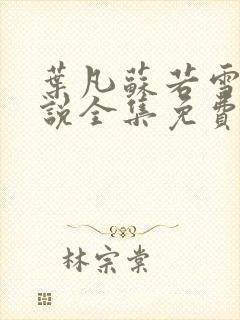 葉凡蘇若雪
說全集免費
林宗棠